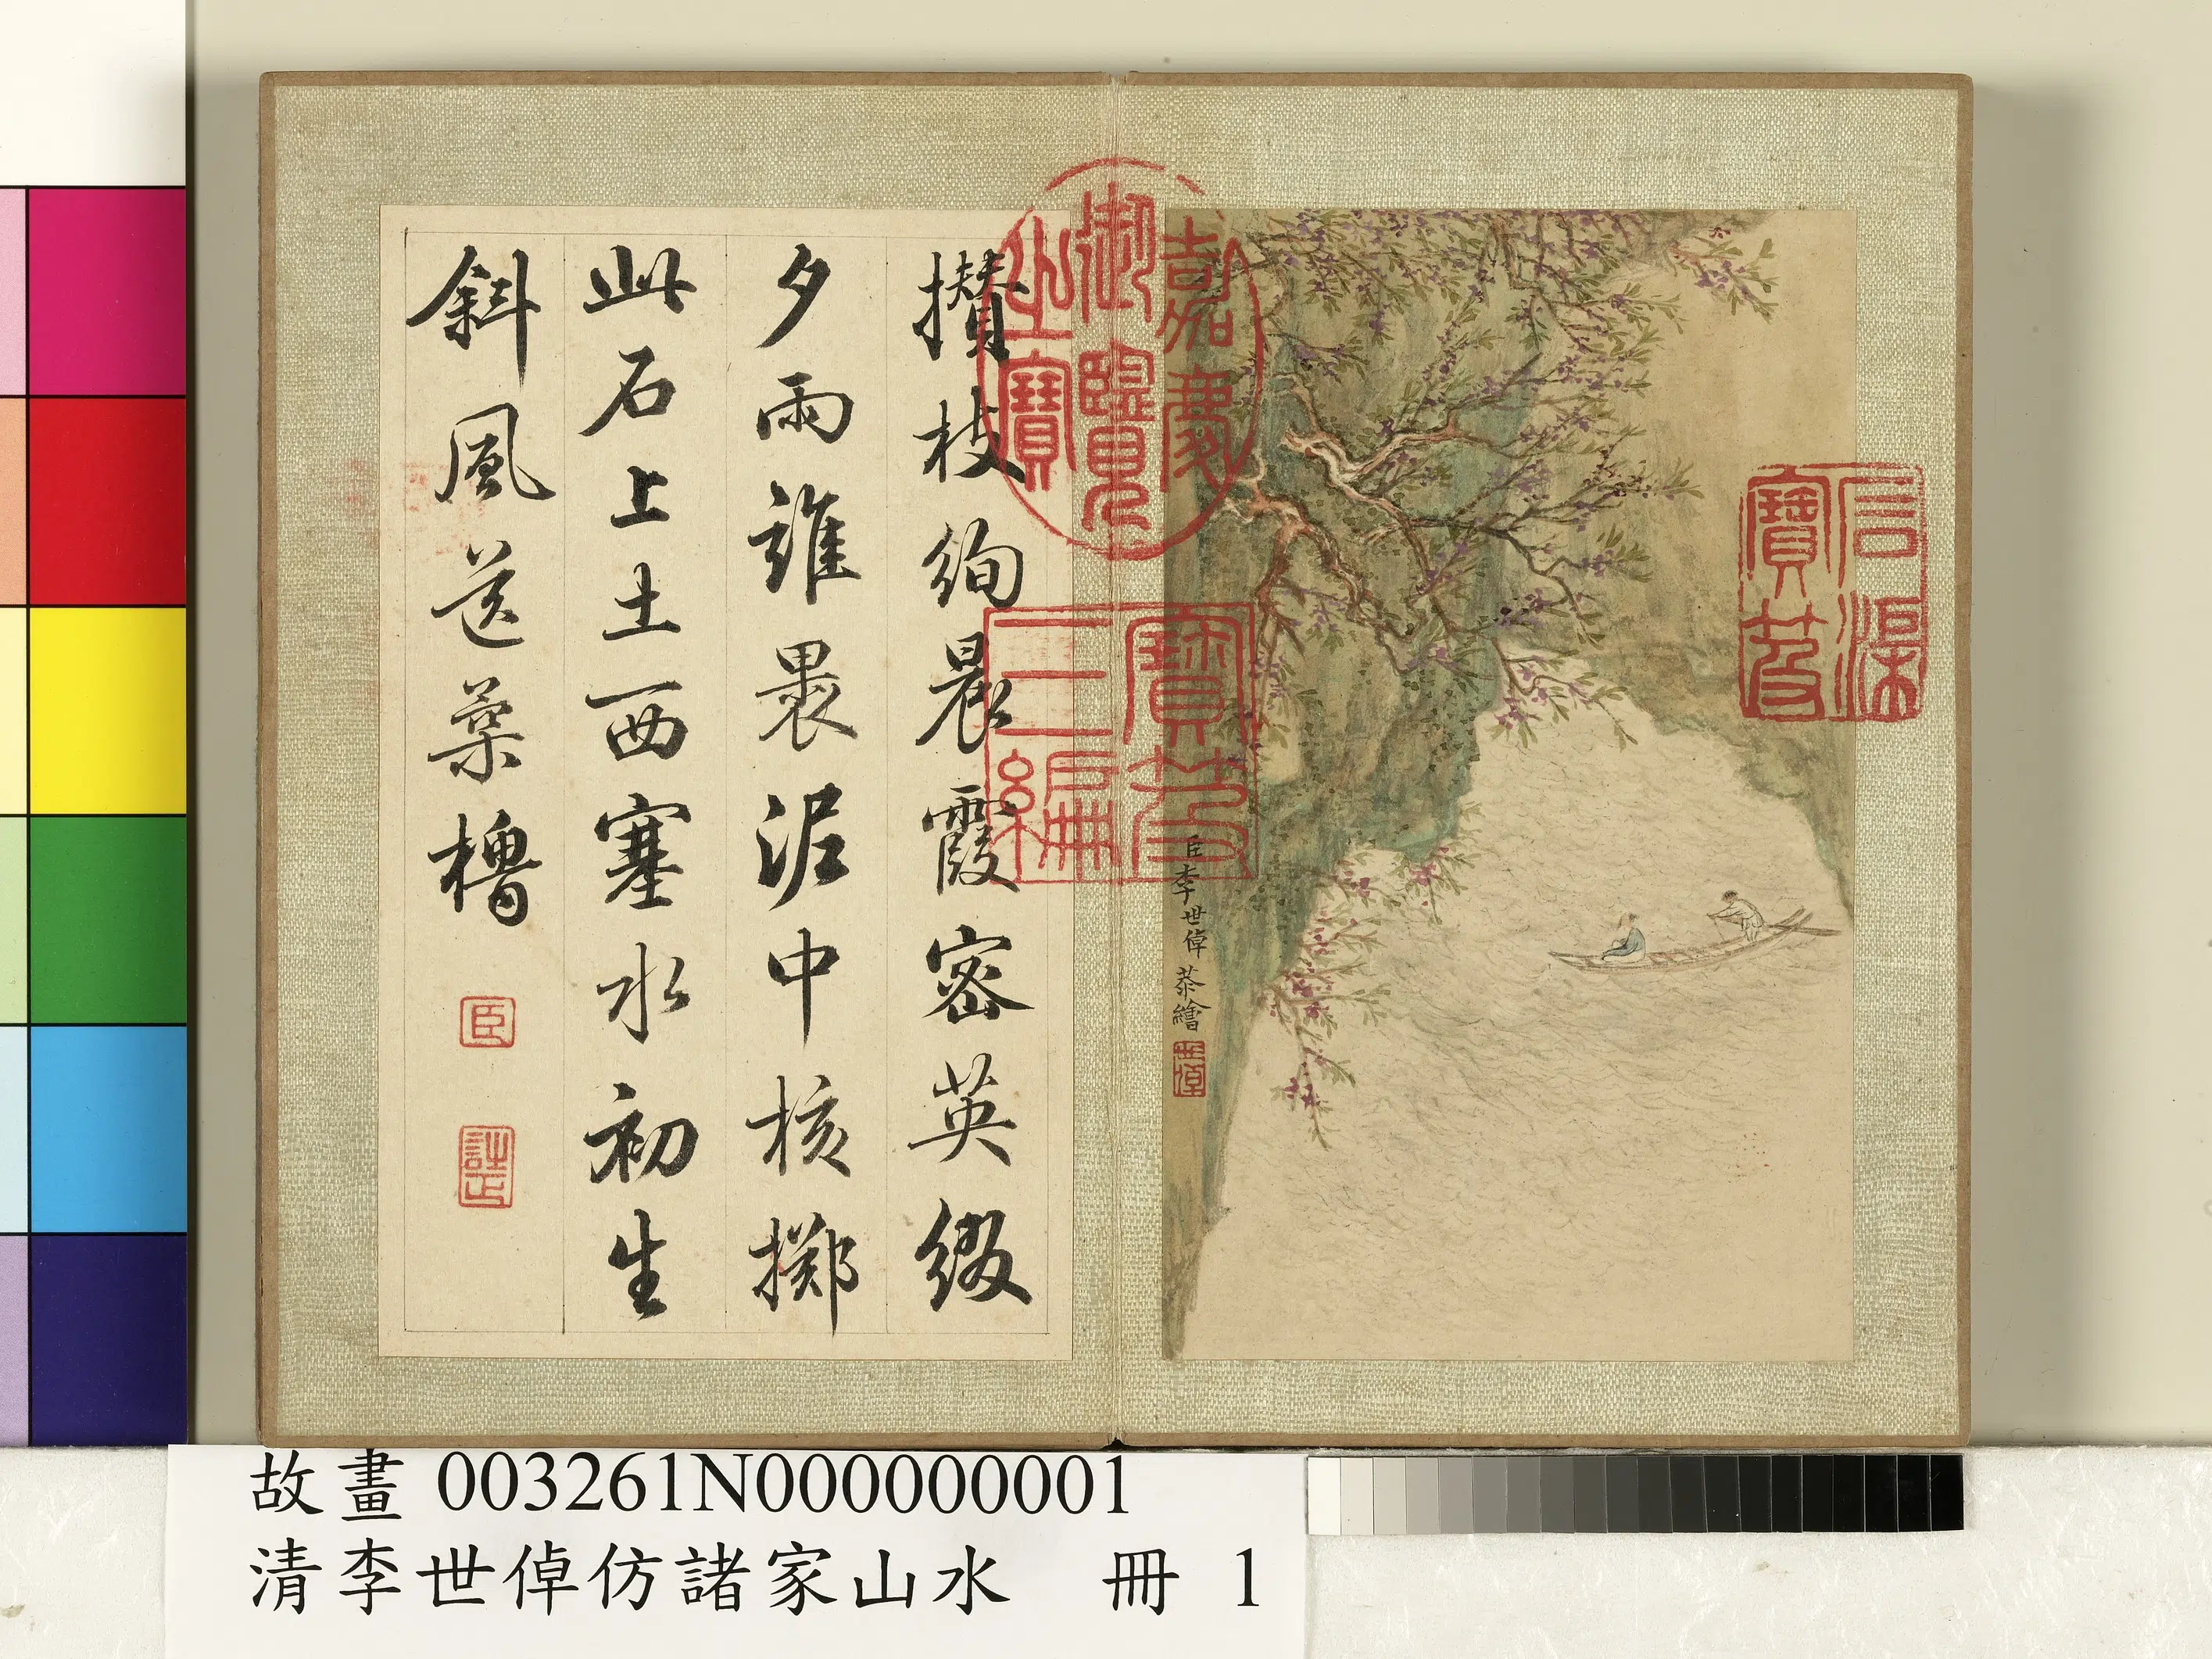 石渠寶笈
嘉慶御覽之寶
寶笈三編
臣李世倬恭繪
世倬
攢枝絢晨霞密英綴
夕雨誰裹泥中核擲
此石上土西塞水初生
斜風送柔櫓
臣
詩正
故畫 003261N000000001
清李世倬仿諸家山水 冊 1